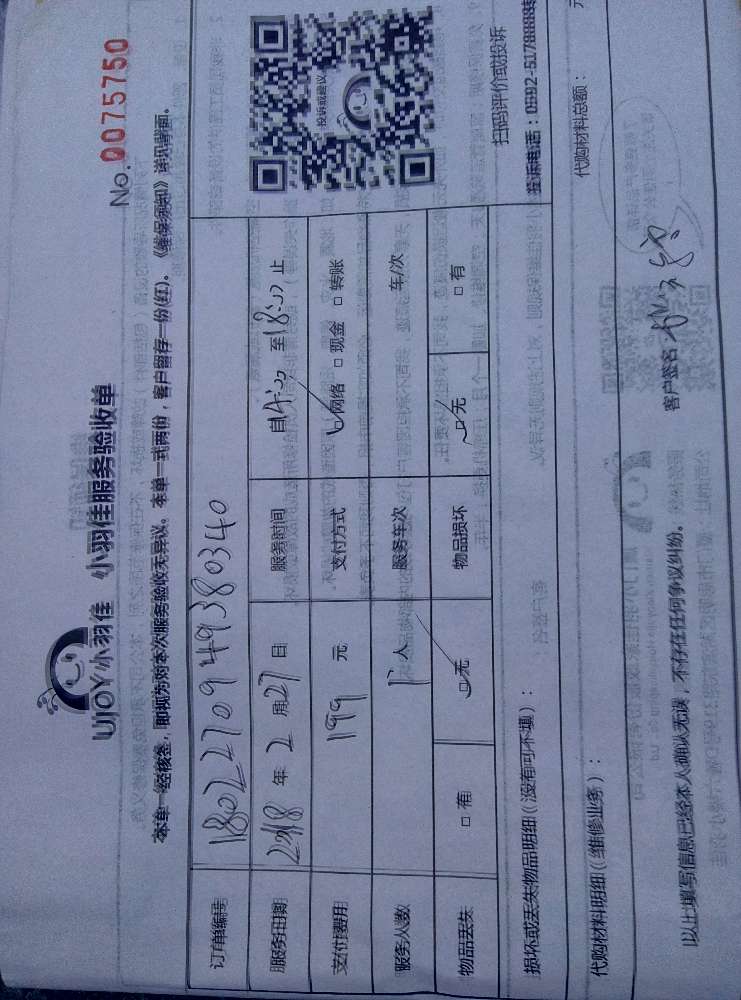 UJOY小羽佳 小羽佳服务验收单
No.0075750
本单一经核签，即视为对本次服务验收无异议。本单一式两份，客户留存一份(红)。《维保须知》详见背面。
订单编号 1802270949380340
服务日期 2018 年 2 月 27 日 服务时间 自14:00 至 18:00 止
支付费用 199 元 支付方式 网络 □ 现金 □ 转账
服务人数 1 人 服务车次 车/次
物品丢失 □ 有 □ 无 物品损坏 □ 无 □ 有
投诉或建议
扫码评价或投诉
损坏或丢失物品明细（没有可不填）：
投诉电话：0592-5178888转
代购材料明细（维修业务）：
代购材料总额： 元
以上填写信息已经本人确认无误，不存在任何争议纠纷。
客户签名：